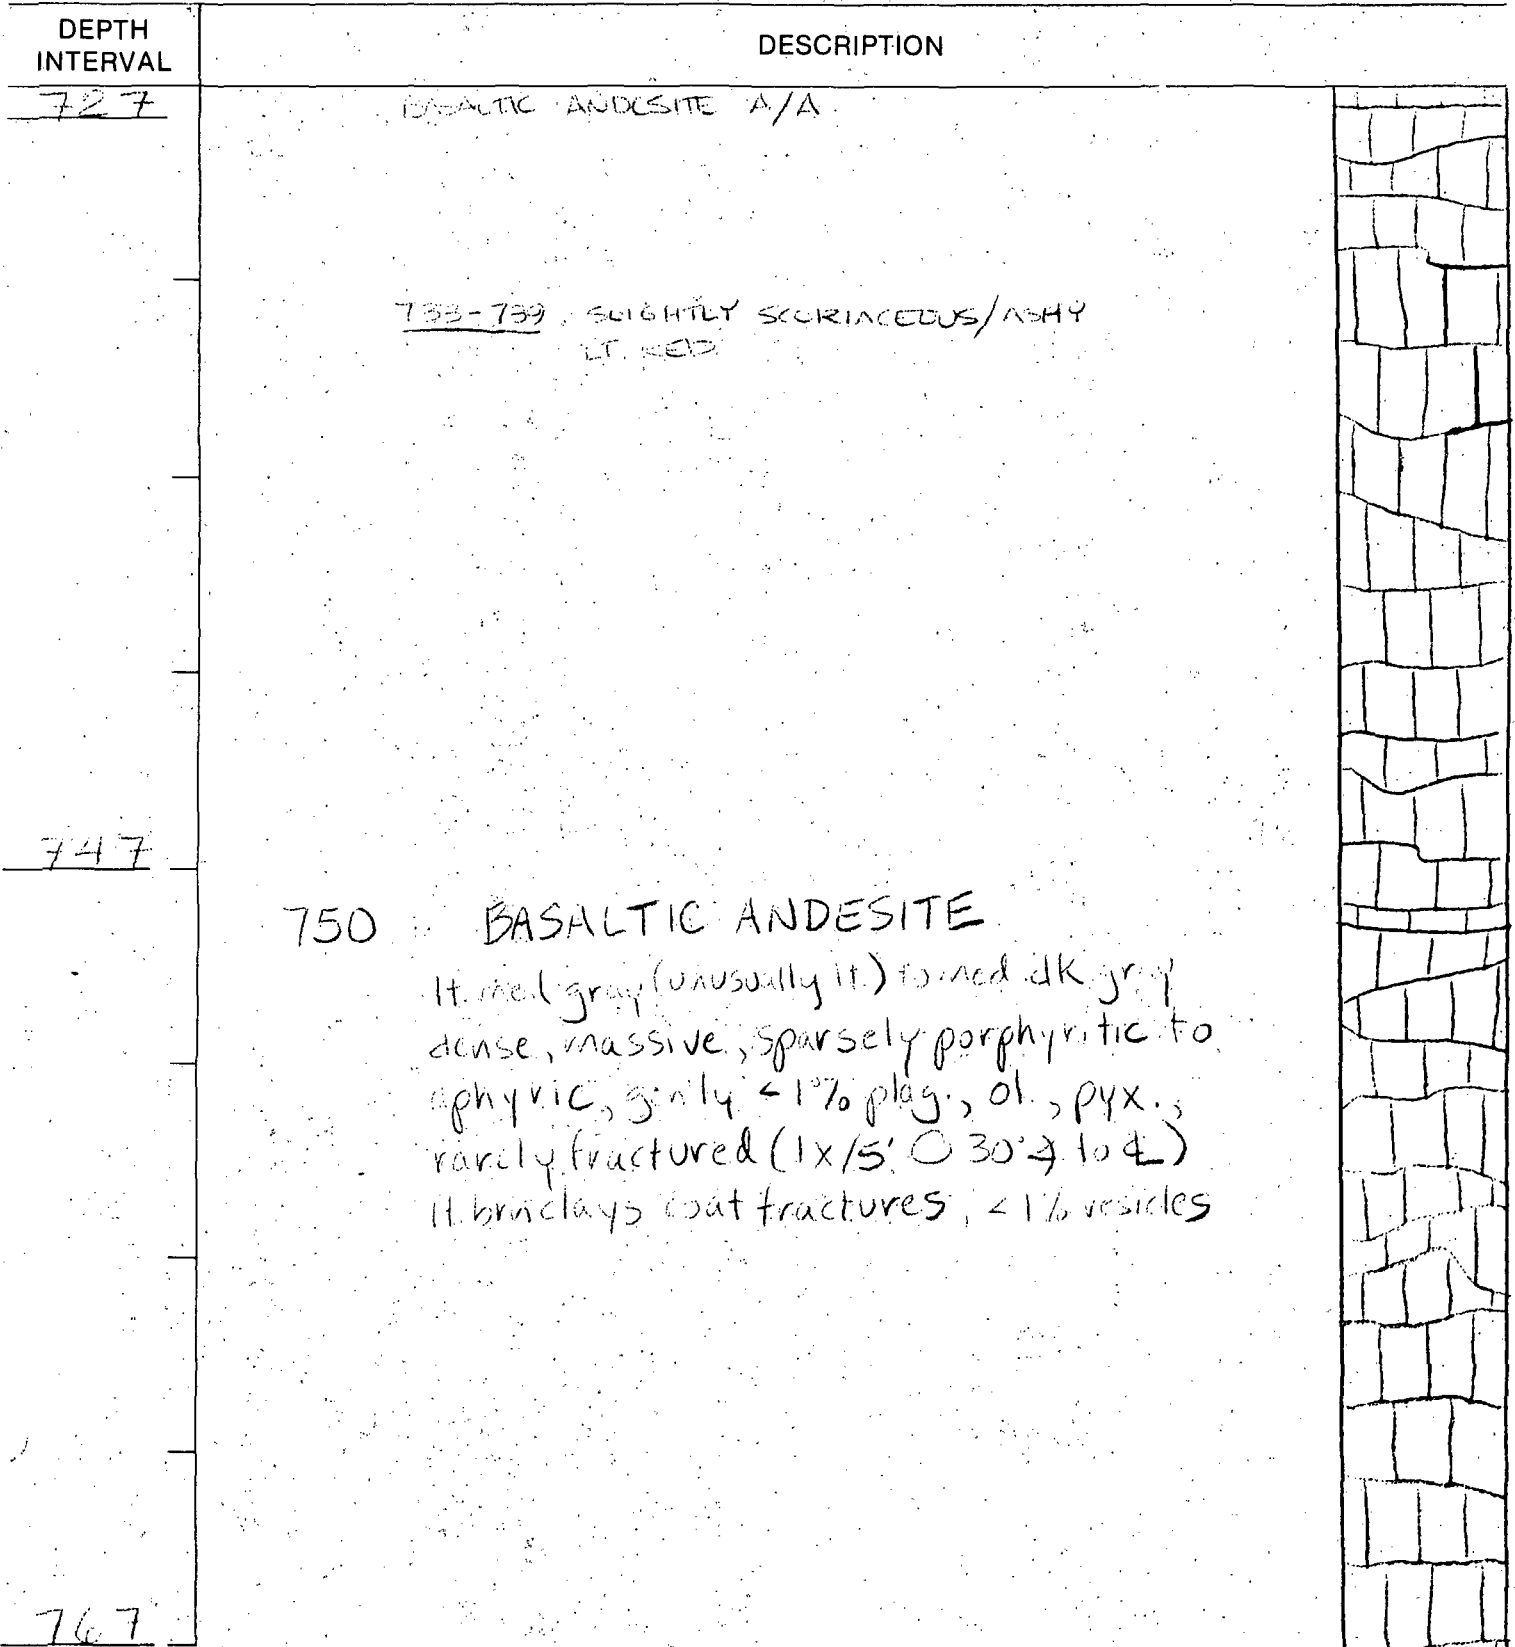 DEPTH INTERVAL
DESCRIPTION
727
BASALTIC ANDESITE A/A
733-739 SLIGHTLY SCORIACEOUS/ASHY
LT. RED
747
750 BASALTIC ANDESITE
lt. med gray (unusually lt.) to med dk gray
dense, massive, sparsely porphyritic to
aphyric, gen'ly <1% plag., ol., pyx.,
rarely fractured (1x/5' @ 30° ∡ to ℄)
lt brn clays coat fractures, <1% vesicles
767